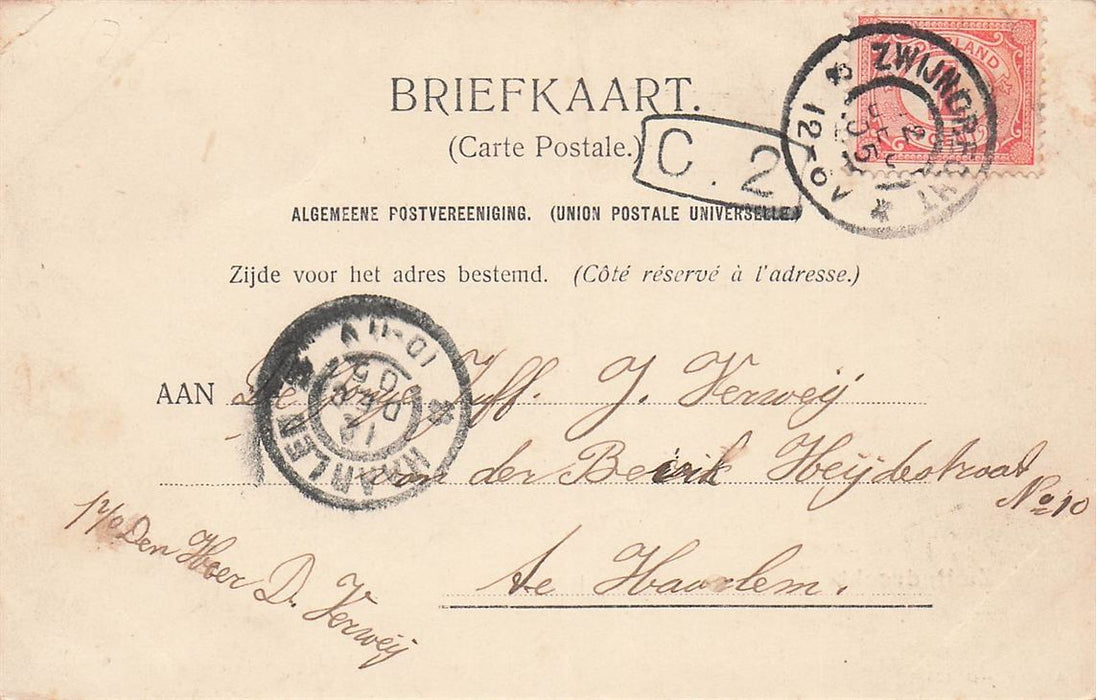 BRIEFKAART.
(Carte Postale.)
C. 2
ZWIJNDRECHT
12-
ALGEMEENE POSTVEREENIGING. (UNION POSTALE UNIVERSELLE)
Zijde voor het adres bestemd. (Côté réservé à l'adresse.)
HAARLEM
10-11V
DEC
05
AAN Juff. J. Verweij
van der Heijdestraat
No 10
te Haarlem.
Den Heer D. Verweij